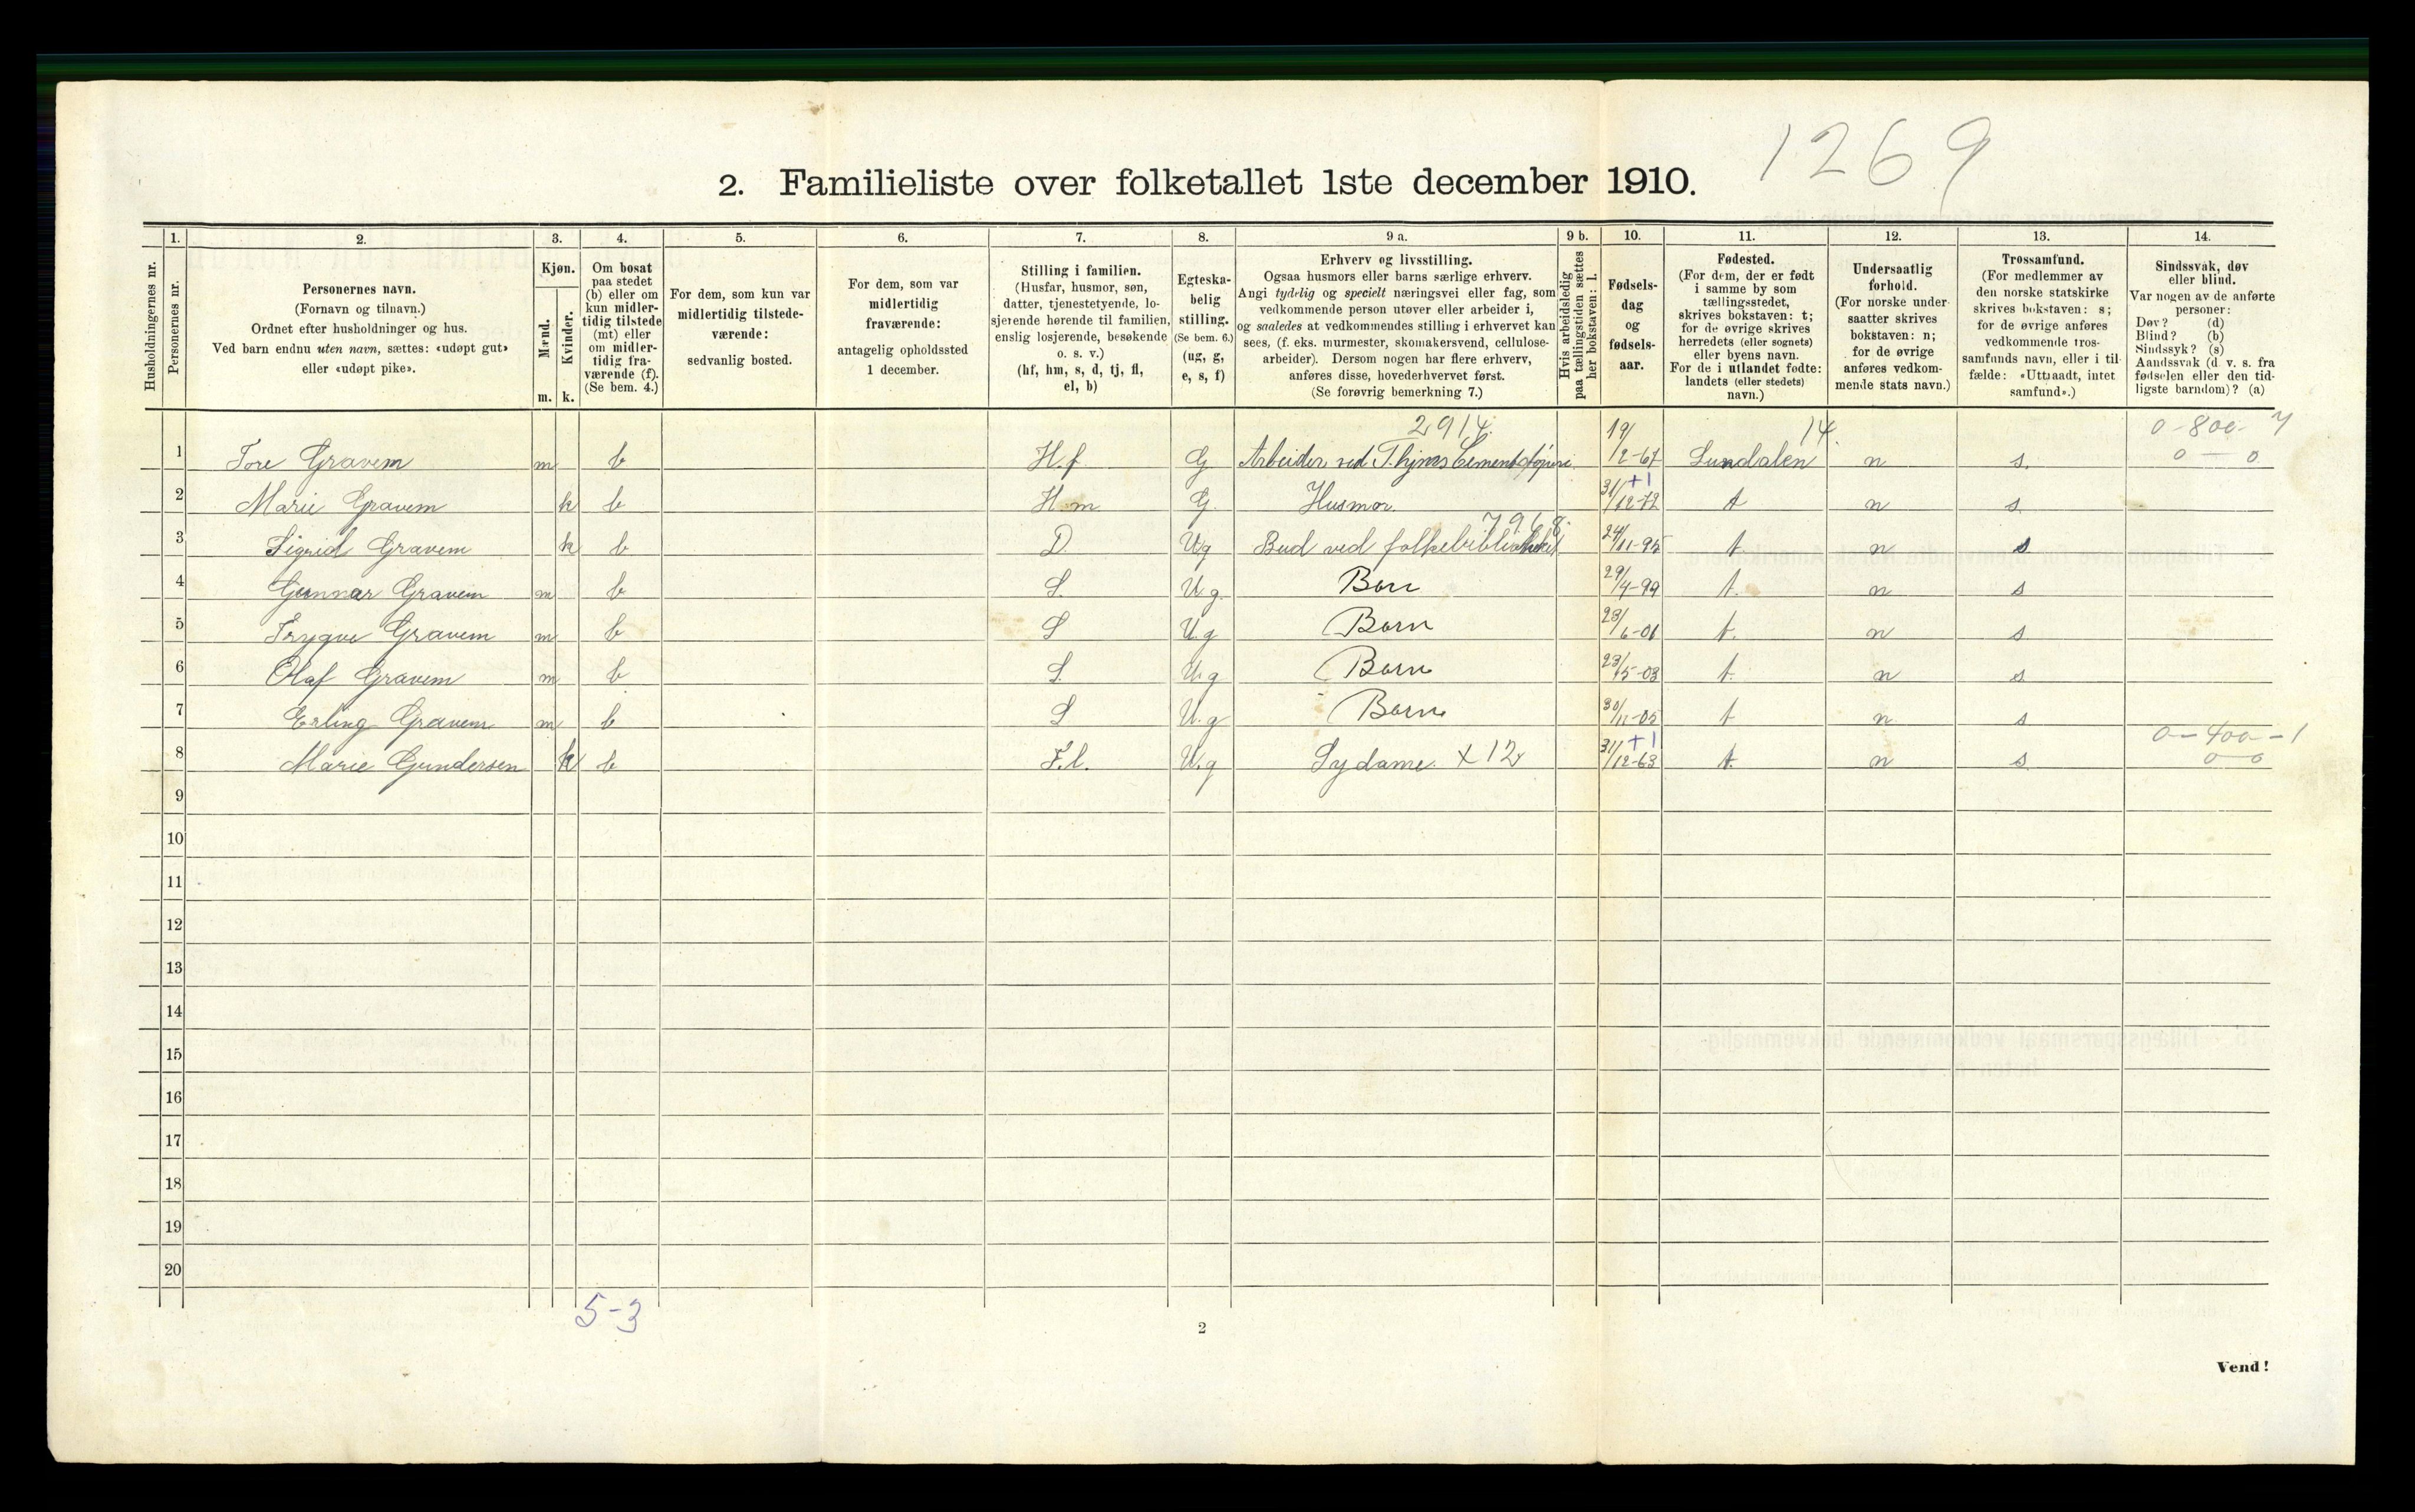 1269
2. Familieliste over folketallet 1ste december 1910.
Husholdningernes nr.
1. Personernes nr.
2. Personernes navn.
(Fornavn og tilnavn.)
Ordnet efter husholdninger og hus.
Ved barn endnu uten navn, sættes: «udøpt gut»
eller «udøpt pike».
3. Kjøn.
Mænd. m.
Kvinder. k.
4. Om bosat
paa stedet
(b) eller om
kun midler-
tidig tilstede
(mt) eller
om midler-
tidig fra-
værende (f).
(Se bem. 4.)
5. For dem, som kun var
midlertidig tilstede-
værende:
sedvanlig bosted.
6. For dem, som var
midlertidig
fraværende:
antagelig opholdssted
1 december.
7. Stilling i familien.
(Husfar, husmor, søn,
datter, tjenestetyende, lo-
sjerende hørende til familien,
enslig losjerende, besøkende
o. s. v.)
(hf, hm, s, d, tj, fl,
el, b)
8. Egteska-
belig
stilling.
(Se bem. 6.)
(ug, g,
e, s, f)
9 a. Erhverv og livsstilling.
Ogsaa husmors eller barns særlige erhverv.
Angi tydelig og specielt næringsvei eller fag, som
vedkommende person utøver eller arbeider i,
og saaledes at vedkommendes stilling i erhvervet kan
sees, (f. eks. murmester, skomakersvend, cellulose-
arbeider). Dersom nogen har flere erhverv,
anføres disse, hovederhvervet først.
(Se forøvrig bemerkning 7.)
9 b. Hvis arbeidsledig
paa tællingstiden sættes
her bokstaven: l.
10. Fødsels-
dag
og
fødsels-
aar.
11. Fødested.
(For dem, der er født
i samme by som
tællingsstedet,
skrives bokstaven: t;
for de øvrige skrives
herredets (eller sognets)
eller byens navn.
For de i utlandet fødte:
landets (eller stedets)
navn.)
12. Undersaatlig
forhold.
(For norske under-
saatter skrives
bokstaven: n;
for de øvrige
anføres vedkom-
mende stats navn.)
13. Trossamfund.
(For medlemmer av
den norske statskirke
skrives bokstaven: s;
for de øvrige anføres
vedkommende tros-
samfunds navn, eller i til-
fælde: «Uttraadt, intet
samfund».)
14. Sindssvak, døv
eller blind.
Var nogen av de anførte
personer:
Døv? (d)
Blind? (b)
Sindssyk? (s)
Aandssvak (d. v. s. fra
fødselen eller den tid-
ligste barndom)? (a)
2914. 14. 0-800-
1 Tore Gravem m b H.f G Arbeider ved Thjms Cementstøperi 19/12-67 Sundalen n s. 0 — 0
2 Marie Gravem k b H.m G. Husmor. 31/12-72 +1 t n s.
7968.
3 Sigrid Gravem k b D. Ug Bud ved folkebibliotheket 24/11-95 t. n s
4 Gunnar Gravem m b S. U.g. Barn 29/4-99 t. n s
5 Trygve Gravem m b S U.g Barn 28/6-01 t. n s
6 Olaf Gravem m b S. U.g Barn 23/5-03 t. n s
7 Erling Gravem m b S U.g Barn 30/11-05 t n. s
0-400-1
8 Marie Gundersen k b F.l. U.g Sydame. x12 31/12-63 +1 t. n s. 0-0
9
10
11
12
13
14
15
16
17
18
19
20
5-3
2
Vend!